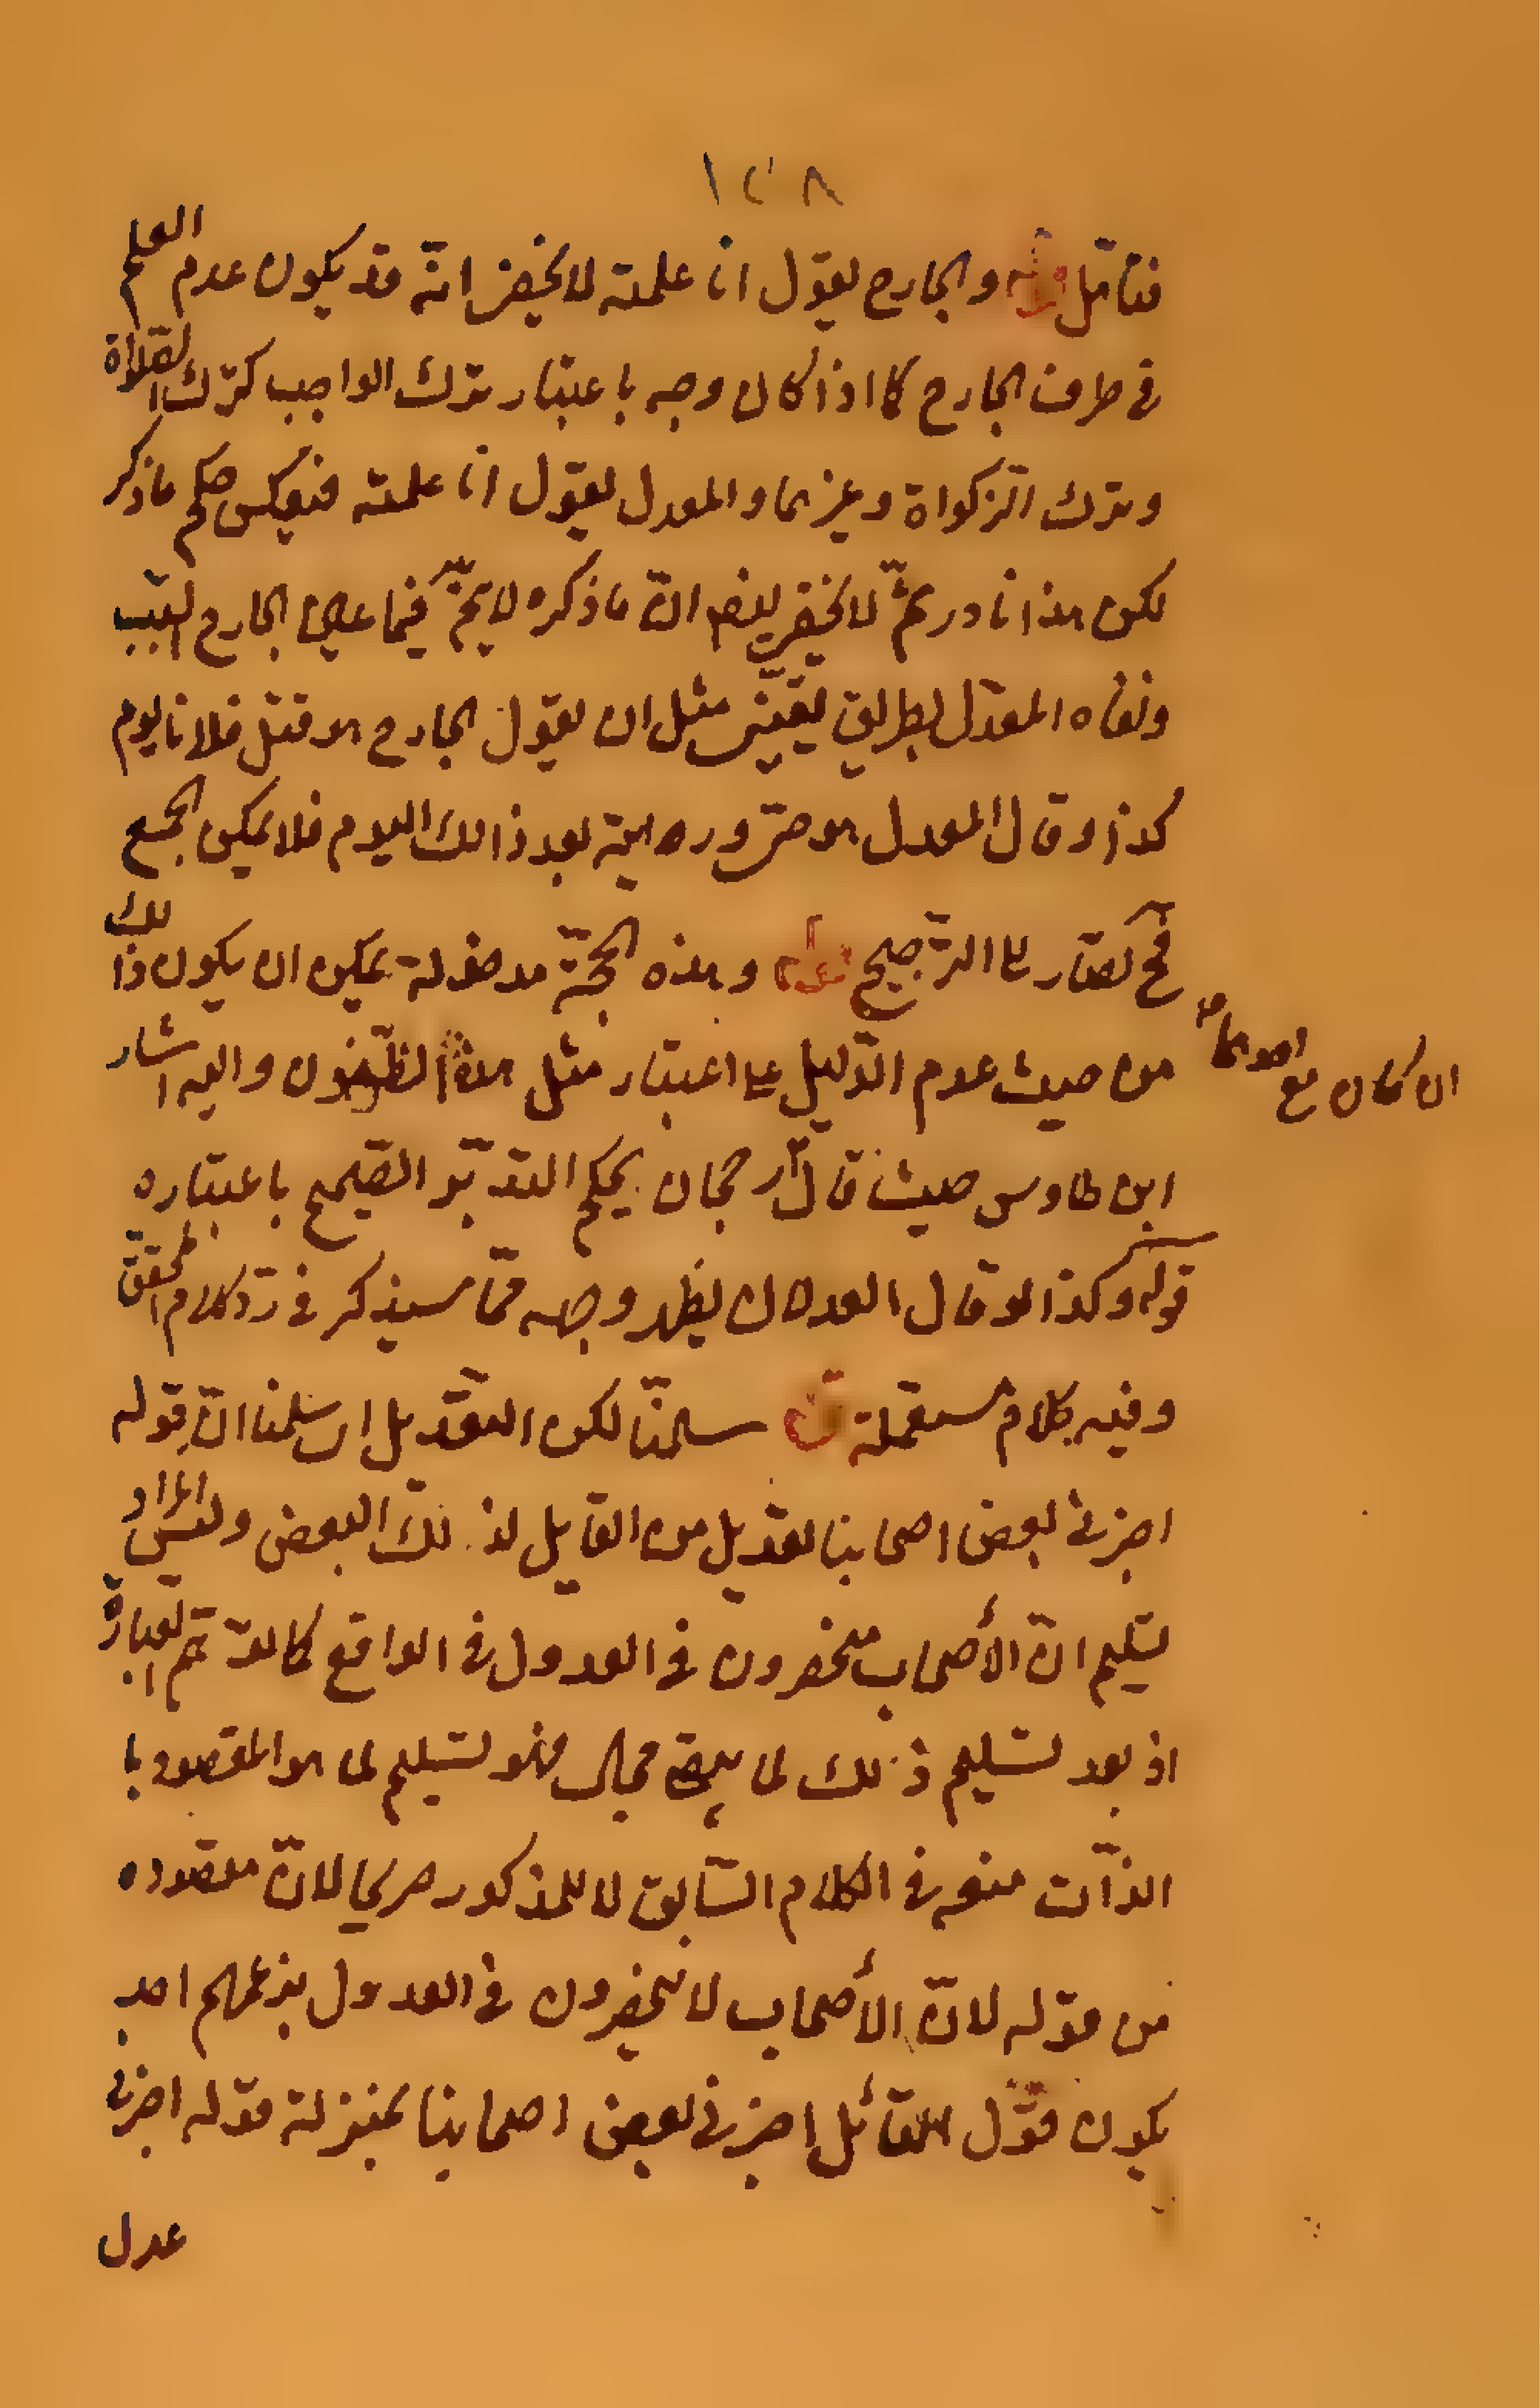 ١٢٨
فتأمل قوله والجارح يقول انا علمته لا يخفى انه قد يكون عدم العلم
فى طرف الجارح كما اذا كان جرحه باعتبار ترك الواجب كترك الصلاة
وترك الزكواة وغيرهما والمعدل يقول انا علمته فينعكس حكم ما ذكر
لكن هذا نادر ثمّ لا يخفى ايضا انّ ما ذكره لا يتم فيما عين الجارح السبب
ونفاه المعدل بطريق يقينى مثل ان يقول الجارح هو قتل فلانا يوم
كذا وقال المعدل هو حىّ ورايته بعد ذالك اليوم فلا يمكن الجمع
فح يصار الى الترجيح قوله وهذه الحجة مدخولة يمكن ان يكون ذالك
من حيث عدم الدليل على اعتبار مثل هذا الظنون واليه اشار
ان كان مع احدهما
ابن طاوس حيث قال رجحان يحكم التدبّر الصحيح باعتباره
قوله وكذا لو قال العدلان يظهر وجهه ممّا سيذكر فى ردّ كلام المحقق
وفيه كلام ستعمله قوله سلمنا لكن التعديل اى سلمنا انّ قوله
اخبرنى بعض اصحابنا تعديل من القايل لذلك البعض وليس المراد
تسليم انّ الأصحاب منحصرون فى العدول فى الواقع كما يتوهم العبارة
اذ بعد تسليم ذلك لما يبقى مجال فهو تسليم لما هو المقصود با
الذات منعه فى الكلام السّابق لا للمذكور صريحا لانّ مقصوده
من قوله لانّ الأصحاب لا ينحصرون فى العدول بزعمهم احد
يكون قول القائل اخبرنى بعض اصحابنا بمنزلة قوله اخبرنى
عدل